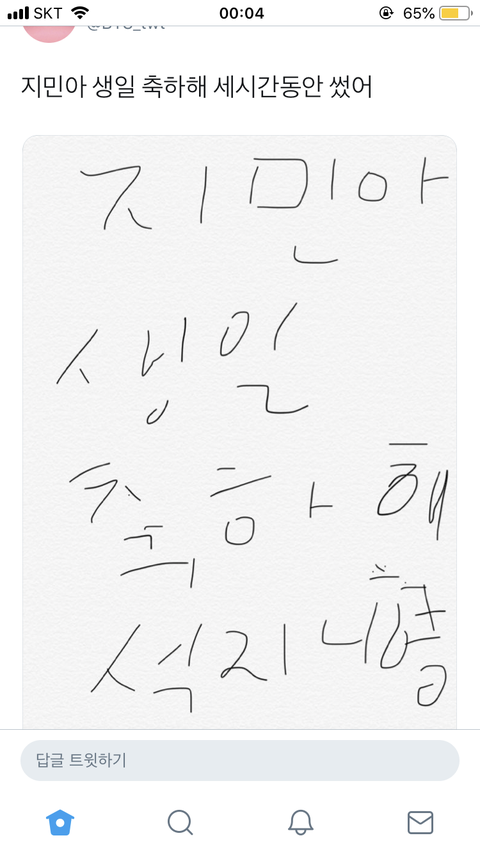 SKT 00:04 65%
@BTS_twt
지민아 생일 축하해 세시간동안 썼어
지민아
생일
축하해
석지니형
답글 트윗하기